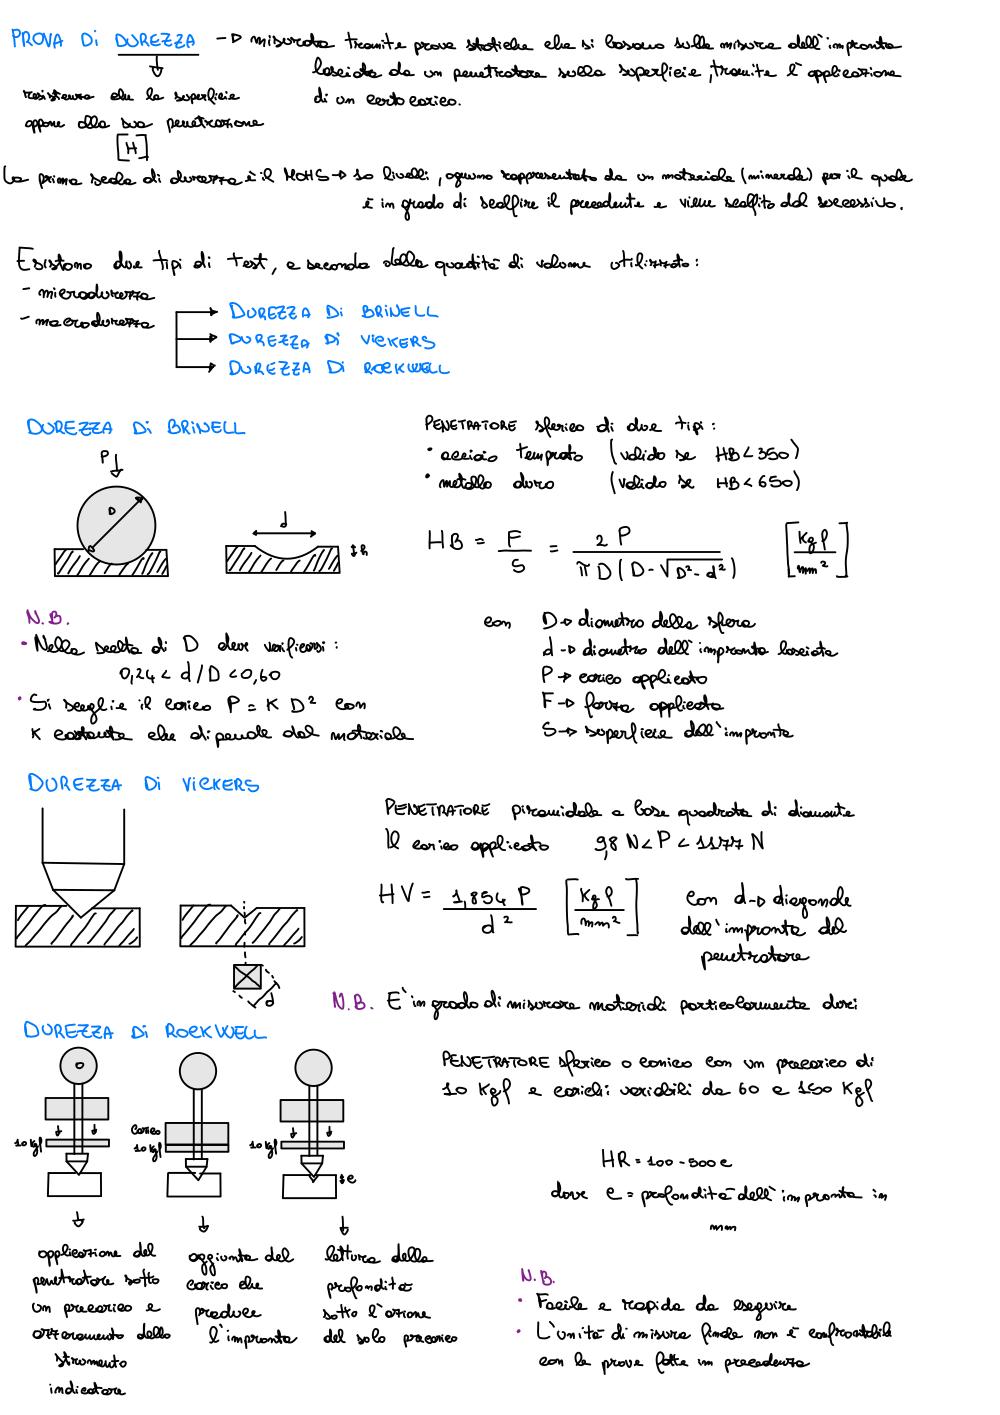 PROVA Di DUREZZA → misurata tramite prove statiche che si basano sulla misura dell'impronta
lasciata da un penetratore sulla superficie, tramite l'applicazione
di un certo carico.
resistenza che la superficie
oppone alla sua penetrazione
[H]
La prima scala di durezza è il MOHS → 10 livelli, ognuno rappresentato da un materiale (minerale) per il quale
è in grado di scalfire il precedente e viene scalfito dal successivo.
Esistono due tipi di test, a seconda della quantità di volume utilizzato:
- microdurezza
- macrodurezza
DUREZZA Di BRiNELL
DUREZZA Di ViCKERS
DUREZZA Di ROCKWELL
DUREZZA Di BRiNELL
P
D
d
h
PENETRATORE sferico di due tipi:
• acciaio temprato (valido se HB < 350)
• metallo duro (valido se HB < 650)
HB = F/S = 2 P / π D (D - √D² - d²) [Kgf/mm²]
N.B.
• Nella scelta di D deve verificarsi:
0,24 < d/D < 0,60
• Si sceglie il carico P = K D² con
K costante che dipende dal materiale
con D → diametro della sfera
d → diametro dell'impronta lasciata
P → carico applicato
F → forza applicata
S → superficie dell'impronta
DUREZZA Di ViCKERS
d
PENETRATORE piramidale a base quadrata di diamante
Il carico applicato 9,8 N < P < 1177 N
HV = 1,854 P / d² [Kgf/mm²]
con d → diagonale
dell'impronta del
penetratore
N.B. E' in grado di misurare materiali particolarmente duri
DUREZZA Di ROCKWELL
10 Kgf
carico
10 Kgf
10 Kgf
e
applicazione del
penetratore sotto
un precarico e
azzeramento dello
strumento
indicatore
aggiunta del
carico che
produce
l'impronta
lettura della
profondità
sotto l'azione
del solo precarico
PENETRATORE sferico o conico con un precarico di
10 Kgf e carichi variabili da 60 a 150 Kgf
HR = 100 - 500 e
dove e = profondità dell'impronta in
mm
N.B.
• Facile e rapida da eseguire
• L'unità di misura finale non è confrontabile
con le prove fatte in precedenza